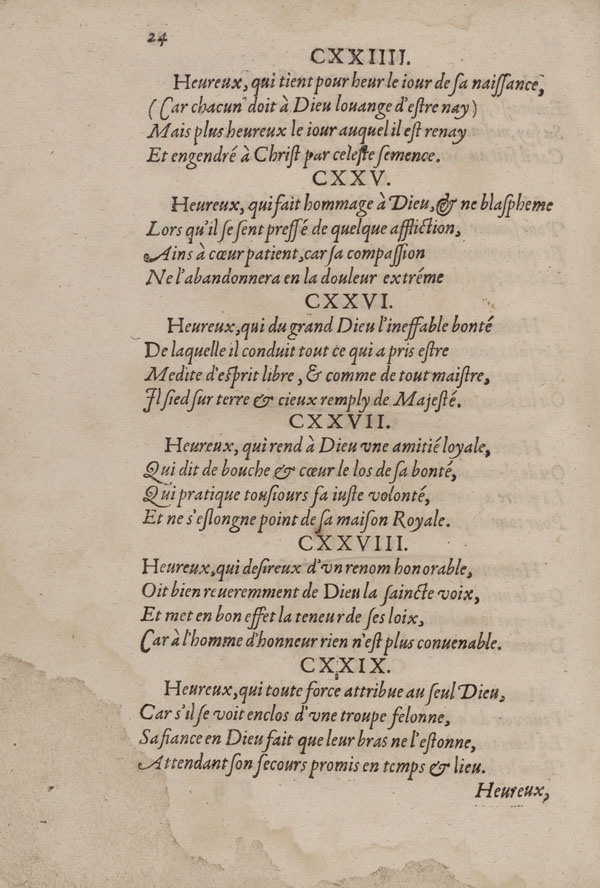 24
CXXIIII.
Heureux, qui tient pour heur le iour de sa naissance,
(Car chacun doit à Dieu louange d'estre nay)
Mais plus heureux le iour auquel il est renay
Et engendré à Christ par celeste semence.
CXXV.
Heureux, qui fait hommage à Dieu, & ne blaspheme
Lors qu'il se sent pressé de quelque affliction,
Ains à cœur patient, car sa compassion
Ne l'abandonnera en la douleur extréme
CXXVI.
Heureux, qui du grand Dieu l'ineffable bonté
De laquelle il conduit tout ce qui a pris estre
Medite d'esprit libre, & comme de tout maistre,
Il sied sur terre & cieux remply de Majesté.
CXXVII.
Heureux, qui rend à Dieu vne amitié loyale,
Qui dit de bouche & cœur le los de sa bonté,
Qui pratique tousiours sa iuste volonté,
Et ne s'eslongne point de sa maison Royale.
CXXVIII.
Heureux, qui desireux d'vn renom honorable,
Oit bien reueremment de Dieu la saincte voix,
Et met en bon effet la teneur de ses loix,
Car à l'homme d'honneur rien n'est plus conuenable.
CXXIX.
Heureux, qui toute force attribue au seul Dieu,
Car s'il se voit enclos d'vne troupe felonne,
Sa fiance en Dieu fait que leur bras ne l'estonne,
Attendant son secours promis en temps & lieu.
Heureux,